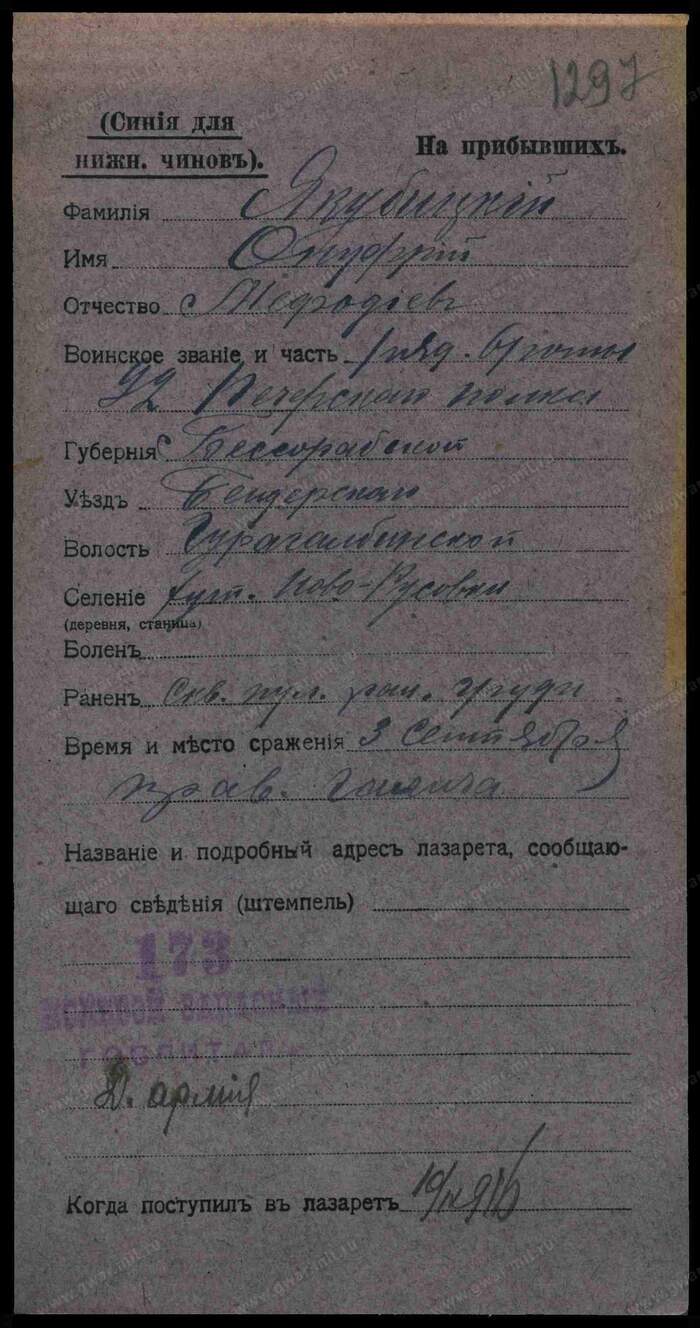 1297
(Синія для
нижн. чиновъ).
На прибывшихъ.
Фамилія Якубицкій
Имя Онуфрій
Отчество Мефодіевъ
Воинское званіе и часть ряд. 6 роты
92 Печерскаго полка
Губернія Бессарабской
Уѣздъ Бендерскаго
Волость Гурагалбинской
Селеніе хут. Ново-Русовки
(деревня, станица)
Боленъ
Раненъ скв. пул. ран. груди
Время и мѣсто сраженія 3 Сентября
Названіе и подробный адресъ лазарета, сообщаю-
щаго свѣдѣнія (штемпель)
173
ПОЛЕВОЙ ЗАПАСНЫЙ
ГОСПИТАЛЬ
Д. армія
Когда поступилъ въ лазаретъ
www.gwar.mil.ru